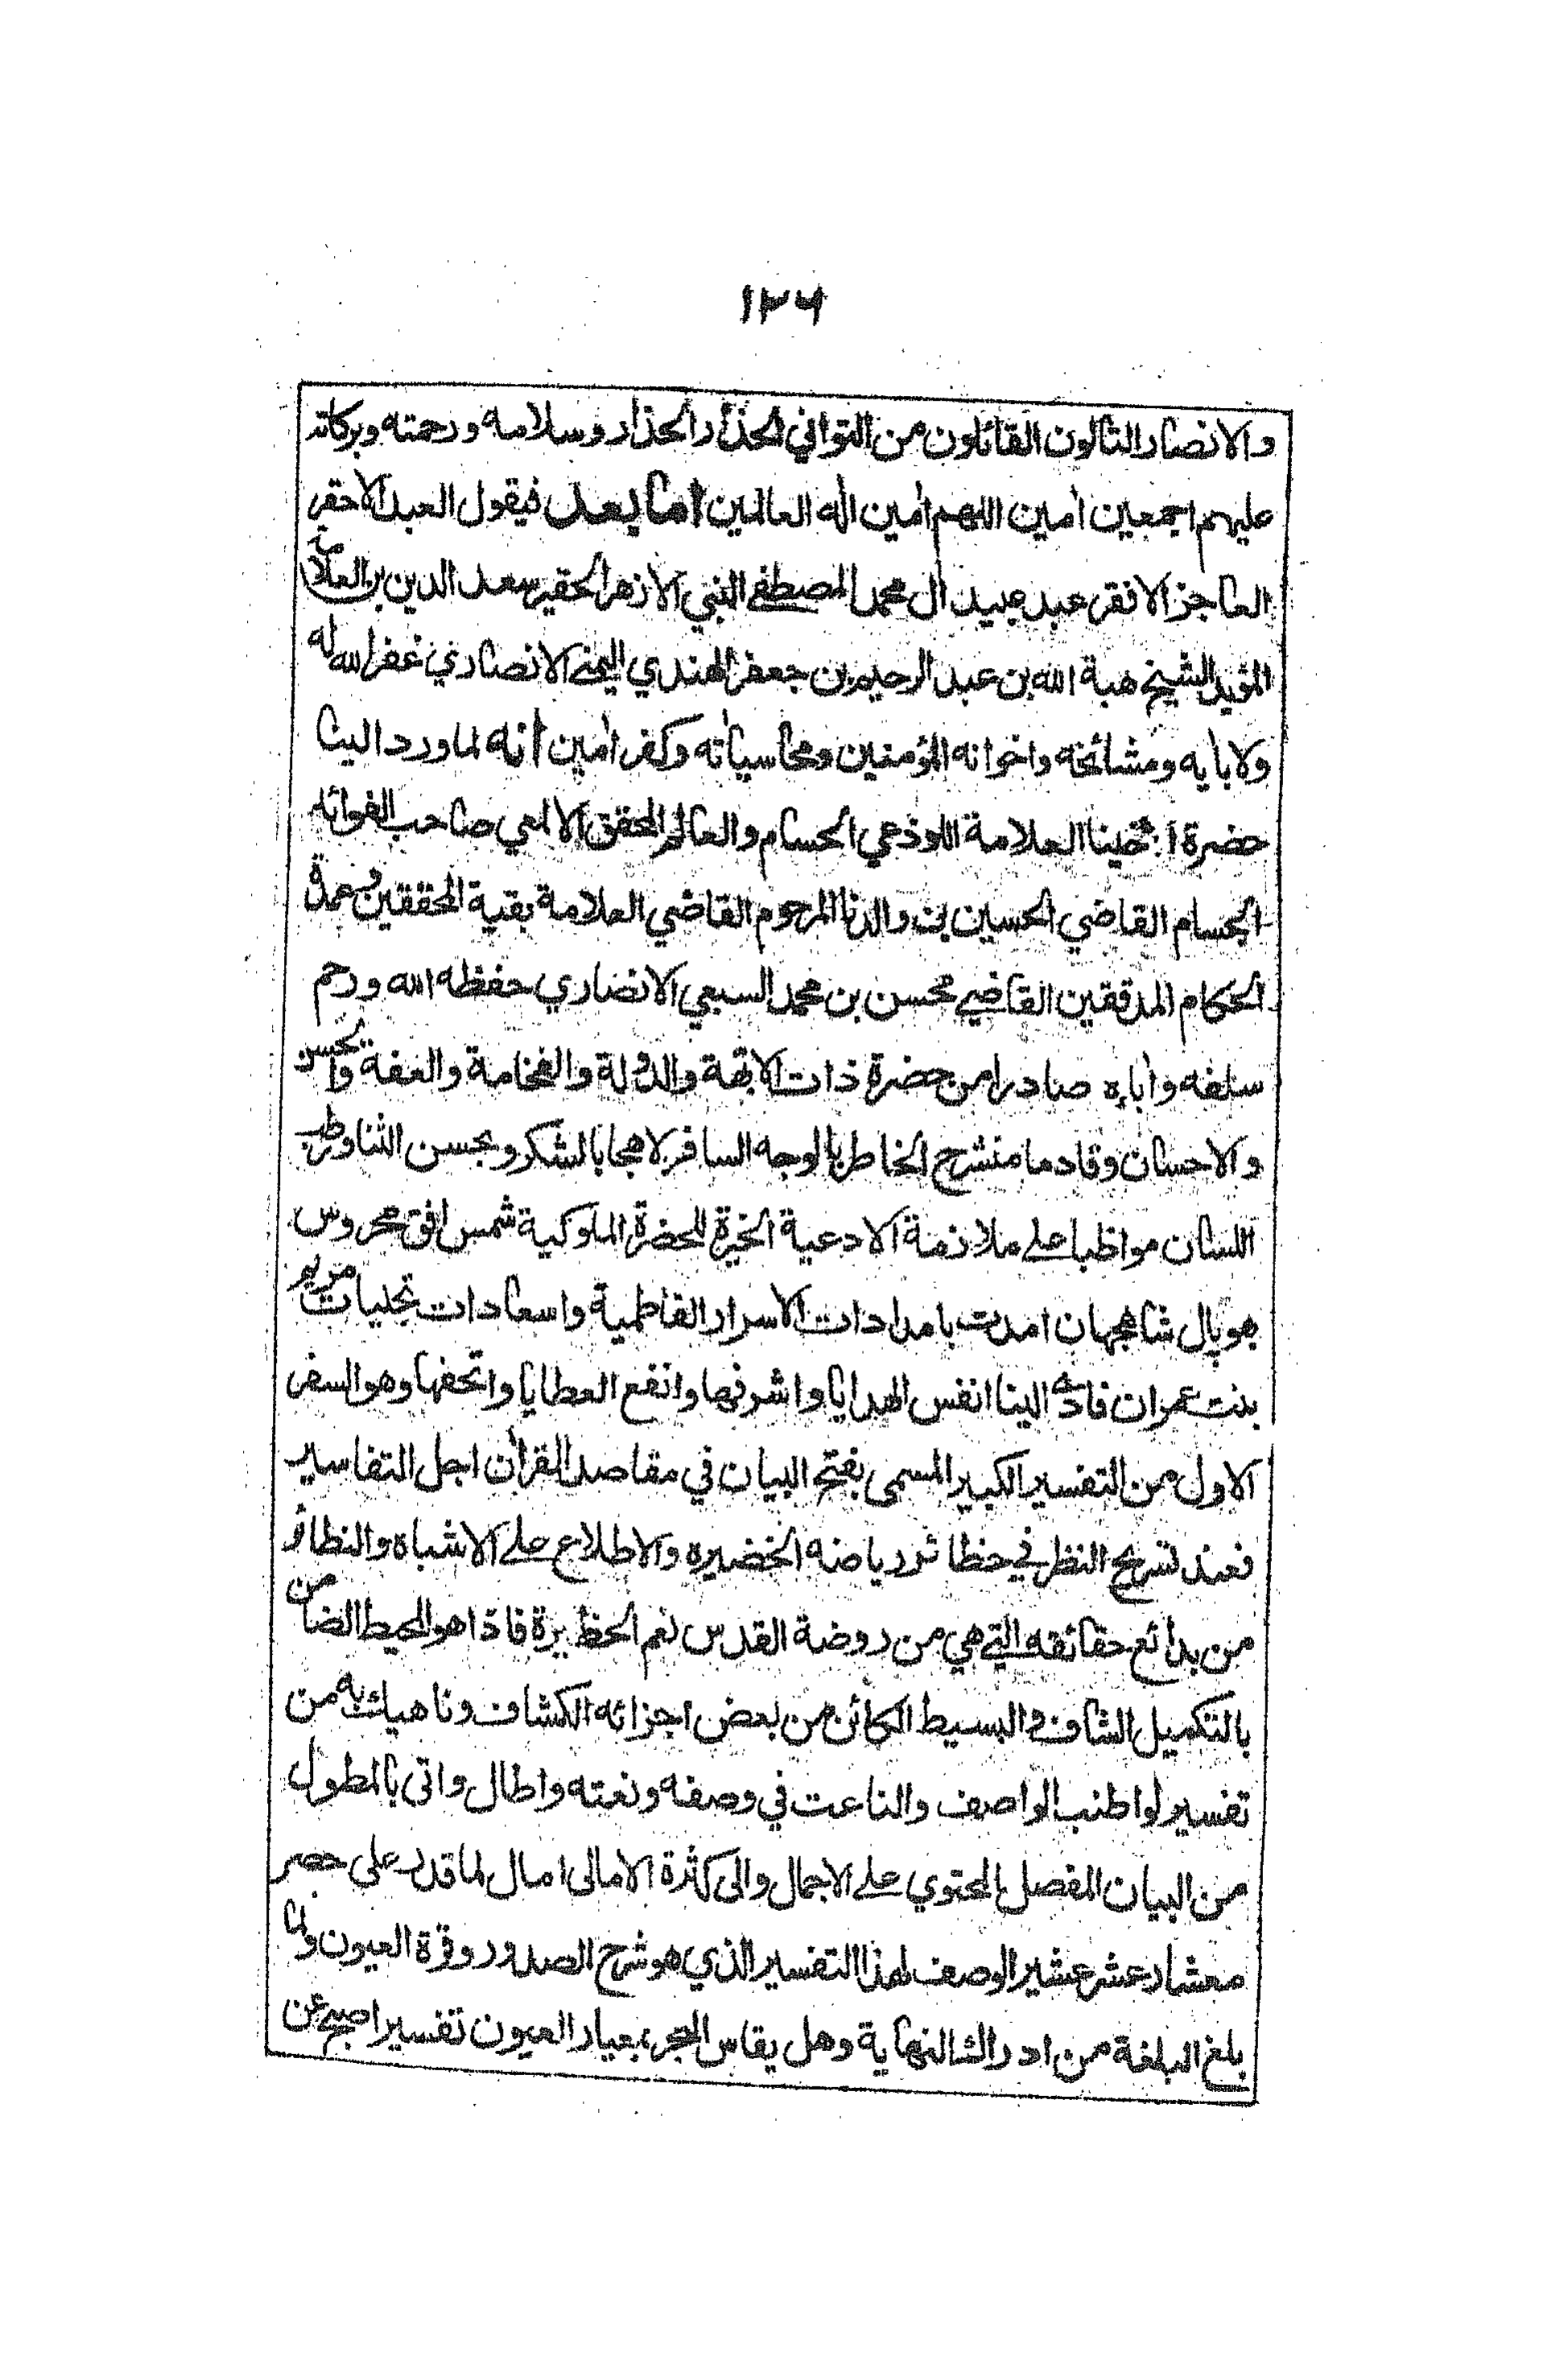 ١٢٦
والانصار التالون القائلون من التواني الحذار الحذار وسلامه ورحمته وبركاته
عليهم اجمعين اٰمين اللهم اٰمين اله العالمين اما بعد فيقول العبد الاحقر
العاجز الافقر عبد عبيد اٰل محمد المصطفى النبي الازهر الحقير سعد الدين بن العلامة
المؤيد الشيخ هبة الله بن عبد الرحيم بن جعفر الهندي اليمني الانصاري غفر الله له
ولابايه ومشائخه واخوانه المؤمنين ومحا سياته وكفر اٰمين انه لما ورد الينا
حضرة العلامة اللوذعي الحسام والعالم المحقق الالمعي صاحب الفوائد
الجسام القاضي الحسين بن والدنا المرحوم القاضي العلامة بقية المحققين وعمدة
الحكام المدققين القاضي محسن بن محمد السبعي الانصاري حفظه الله ورحم
سلفه واٰباءه صادرا من حضرة ذات الابهة والدولة والفخامة والعفة والحسن
والاحسان وقادما منشرح الخاطر بالوجه السافر لاهجا بالشكر وبحسن الثنا وطر
اللسان مواظبا على ملازمة الادعية الخيرة للحضرة الملوكية شمس افق محروس
بهوپال شاهجهان امدت بامدادات الاسرار الفاطمية واسعادات تجليات مريم
بنت عمران فادى الينا انفس الهدايا واشرفها وانفع العطايا واتحفها وهو السفر
الاول من التفسير الكبير المسمى بفتح البيان في مقاصد القراٰن اجل التفاسير
فعند تسريح النظر في حظائر رياضه الخضيره والاطلاع على الاشباه والنظائر
من بدائع حقائقه التي هي من روضة القدس نعم الحظيرة فاذا هو المحيط الضامن
بالتكميل الشاف والبسيط الكائن من بعض اجزائه الكشاف وناهيك به من
تفسير لو اطنب الواصف والناعت في وصفه ونعته واطال واتى بالمطول
من البيان المفصل المحتوي على الاجمال والى كثرة الامالى امال لما قدر على حصر
معشار عشر عشير الوصف لهذا التفسير الذي هو شرح الصدور وقرة العيون ولما
بلغ البلغة من ادراك النهاية وهل يقاس البحر بمعيار العيون تفسير اصبح عن